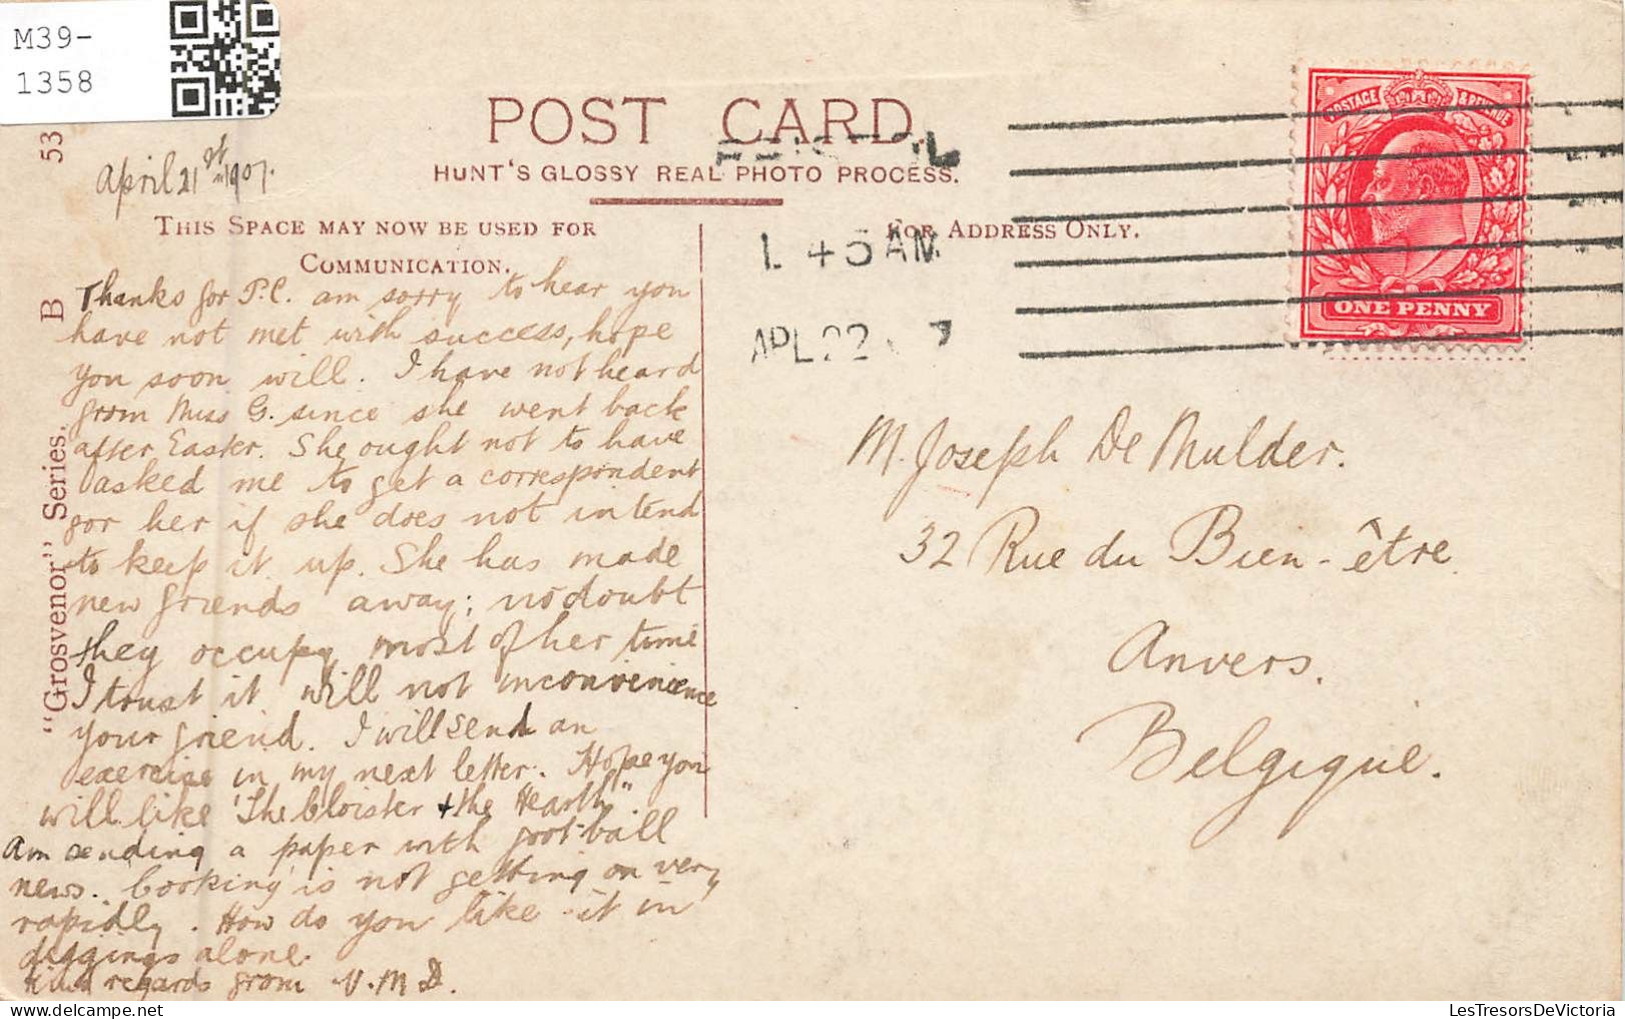 M39-
1358
POST CARD
HUNT'S GLOSSY REAL PHOTO PROCESS.
THIS SPACE MAY NOW BE USED FOR
COMMUNICATION.
FOR ADDRESS ONLY.
"Grosvenor" Series.
B
53
POSTAGE & REVENUE
ONE PENNY
1. 45 AM
APL 22 7
April 21st 1907.
Thanks for P.C. am sorry to hear you
have not met with success, hope
you soon will. I have not heard
from Miss G. since she went back
after Easter. She ought not to have
asked me to get a correspondent
for her if she does not intend
to keep it up. She has made
new friends away; no doubt
they occupy most of her time
I trust it will not inconvenience
your friend. I will send an
exercise in my next letter. Hope you
will like "The Cloister & the Hearth".
Am sending a paper with foot-ball
news. Cooking is not getting on very
rapidly. How do you like it in
diggings alone.
Kind regards from V.M.D.
M. Joseph De Mulder.
32 Rue du Bien-être
Anvers.
Belgique.
LesTresorsDeVictoria